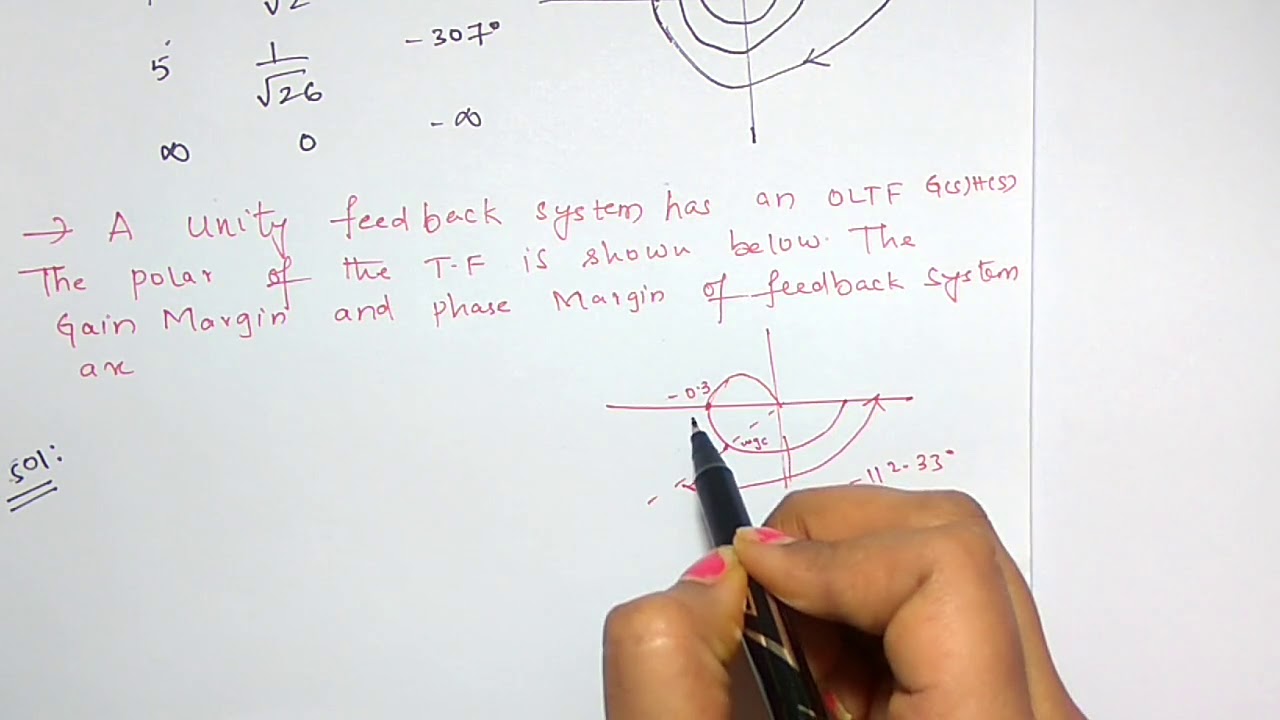 √2
5 1/√26 - 307°
∞ 0 - ∞
→ A unity feedback system has an OLTF G(s)H(s)
The polar of the T.F is shown below. The
Gain Margin and phase Margin of feedback system
are
- 0.3
ωgc
-112.33°
Sol: